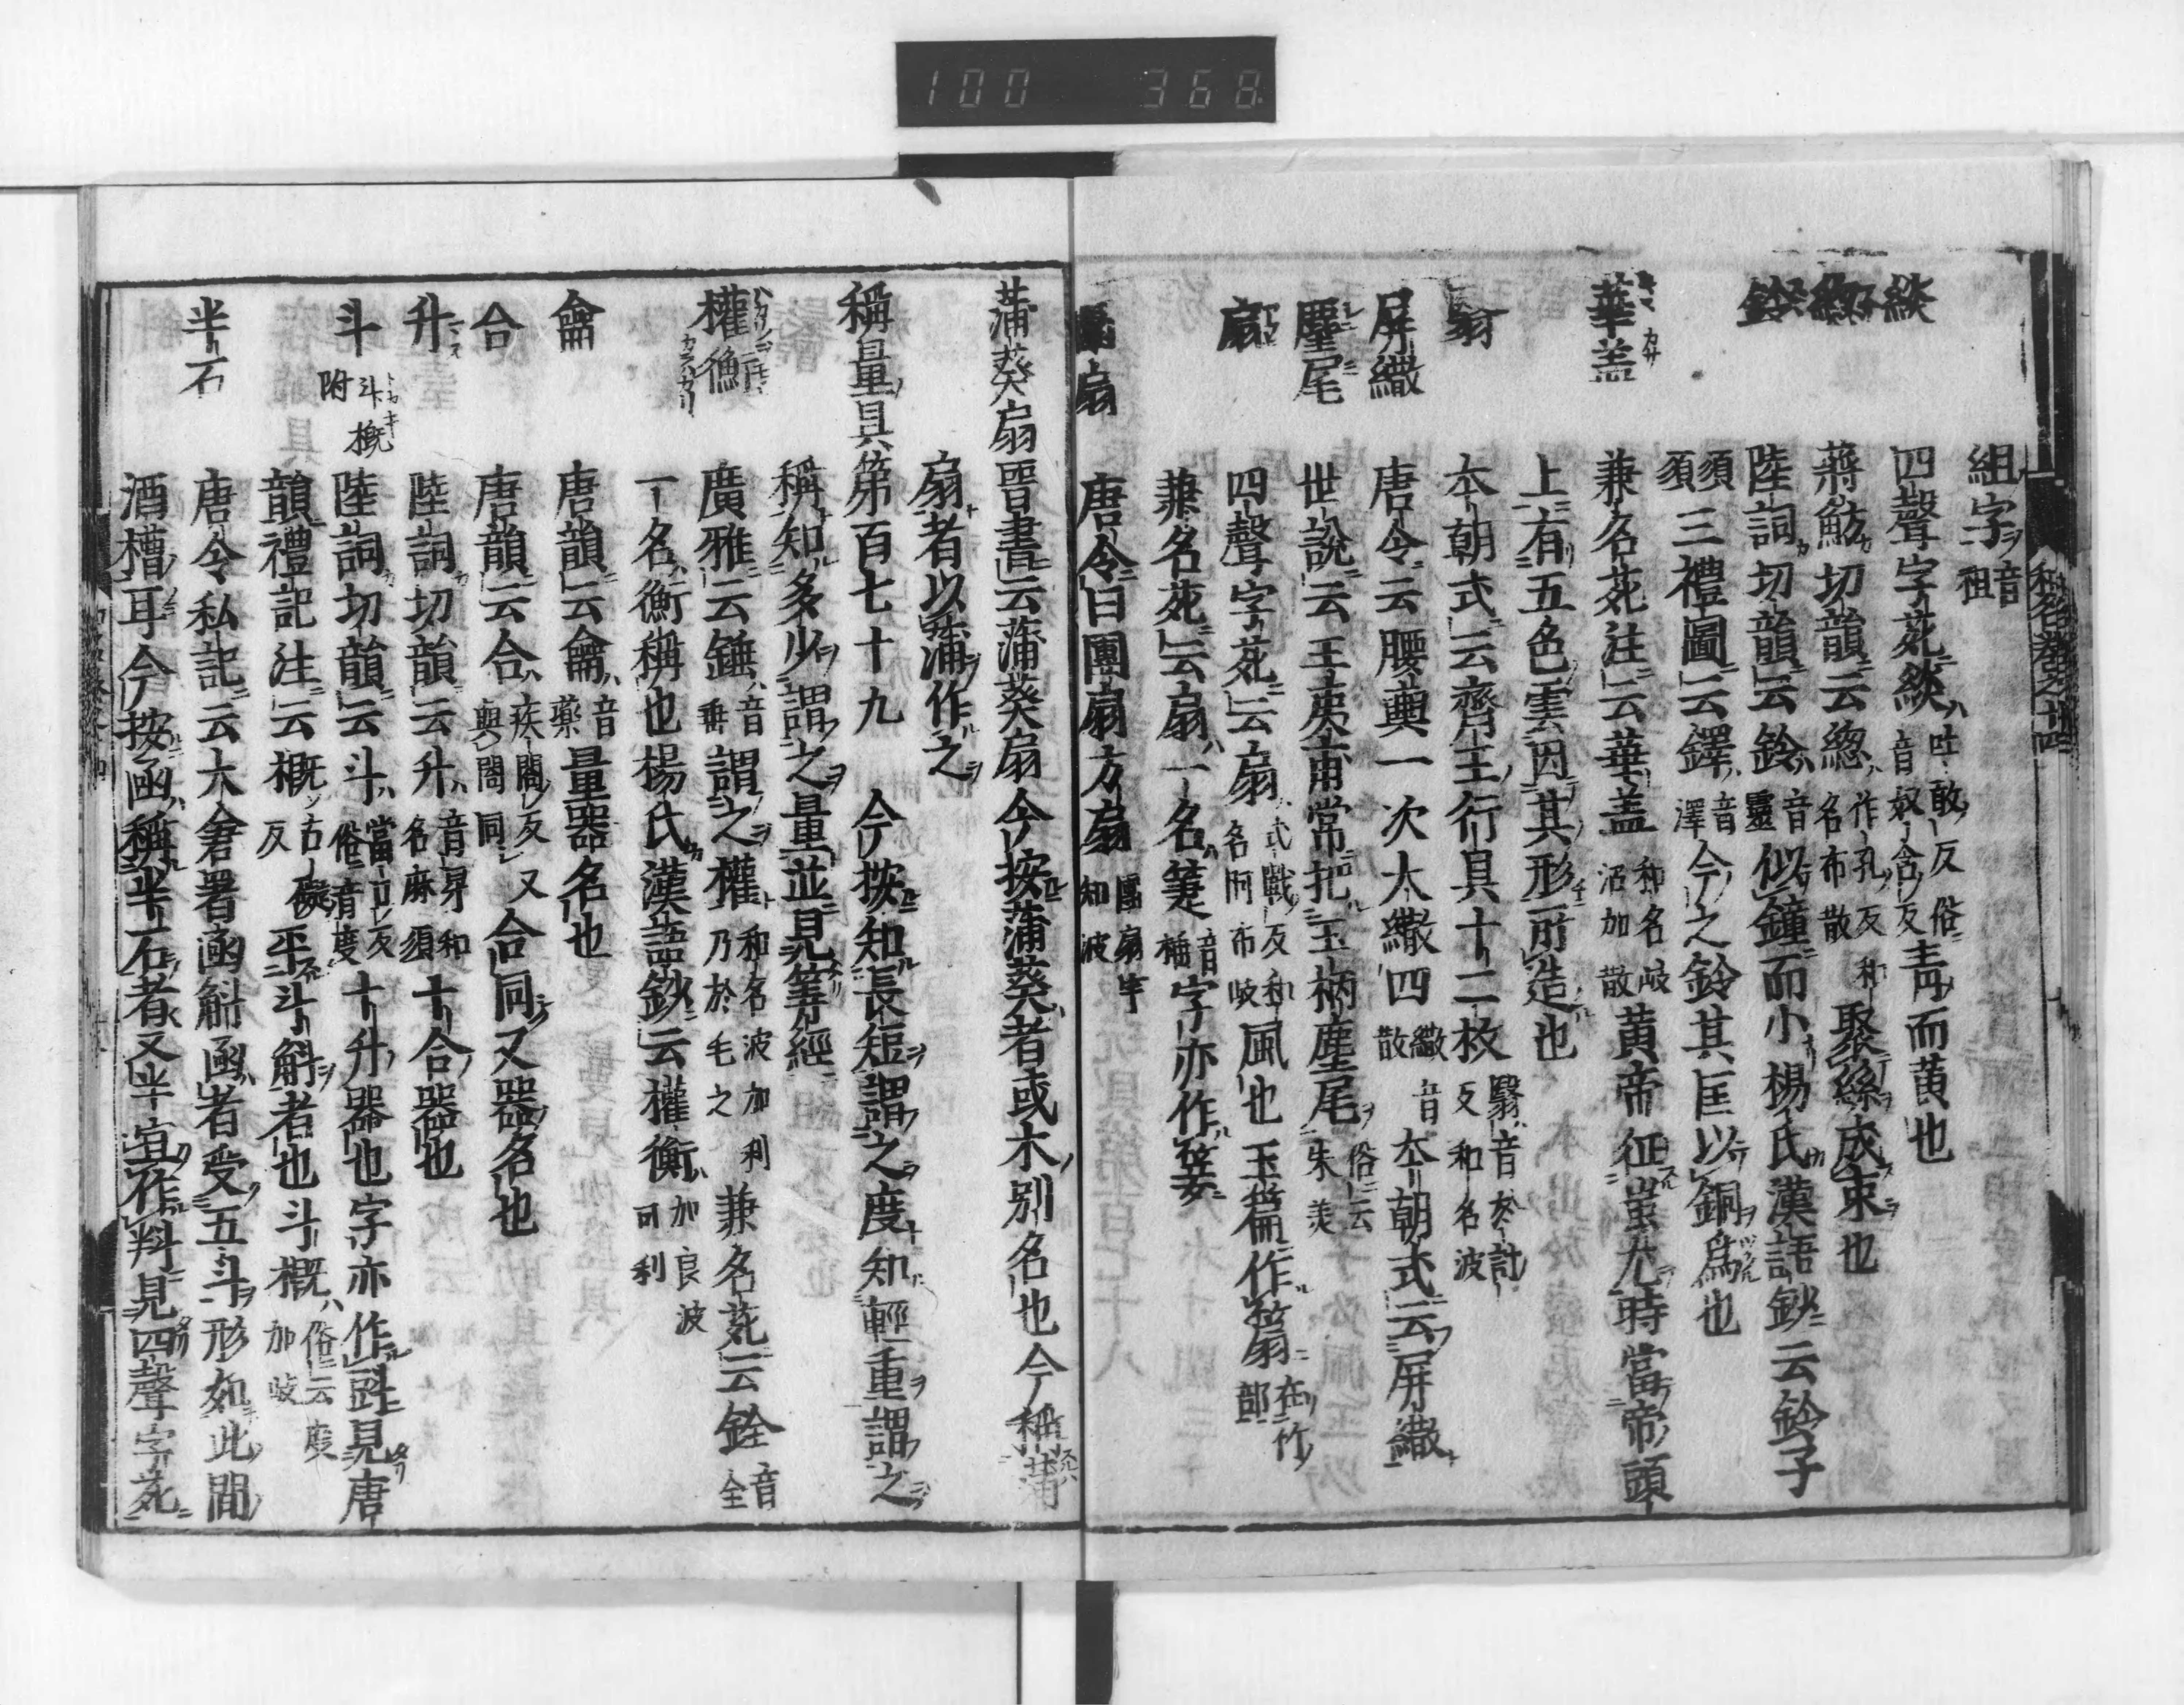 100 368
組字音祖
緂 四聲字苑緂吐敢反俗音奴含反青而黄也
総 蔣魴切韻云緫作孔反和名布散聚絲成束也
鈴 陸詞切韻云鈴音靈似鐘而小楊氏漢語鈔云鈴子
須須三禮圖云鐸音澤今之鈴其匡以銅爲也
華盖 兼名苑注云華盖和名岐沼加散黄帝征蚩尤時當帝頭
上有五色雲因其形所造也
翳 本朝式云齊王行具十二枚翳音於計反和名波
屏繖 唐令云腰輿一次大繖四繖音散本朝式云屏繖
麈尾 世說云王夷甫常把玉柄麈尾俗云朱美
扇 四聲字苑云扇式戰反和名阿布岐風也玉篇作䈉在竹部
兼名苑云扇一名箑音字亦作翣
團扇 唐令曰團扇方扇團扇宇知波
蒲葵扇 晋書云蒲葵扇今按蒲葵者或木別名也今稱蒲
扇者以蒲作之
稱量具第百七十九 今按知長短謂之度知輕重謂之
稱知多少謂之量並見筭經
權衡 廣雅云錘音垂謂之權和名波加利乃於毛之兼名苑云銓音全
一名衡稱也楊氏漢語鈔云權衡加良波可利
龠 唐韻云龠音藥量器名也
合 唐韻云合疾閤反又與閤同又合同又器名也
升 陸詞切韻云升音昇和名麻須十合器也
斗 斗概附 陸詞切韻云斗當口反俗音度十升器也字亦作㪷見唐
韻禮記注云概古礙反平斗斛者也斗概俗云度加岐
半石 唐令私記云大倉署函斛函者受五斗形如此間
酒槽耳今按函稱半石者又半宜作䉽見四聲字苑